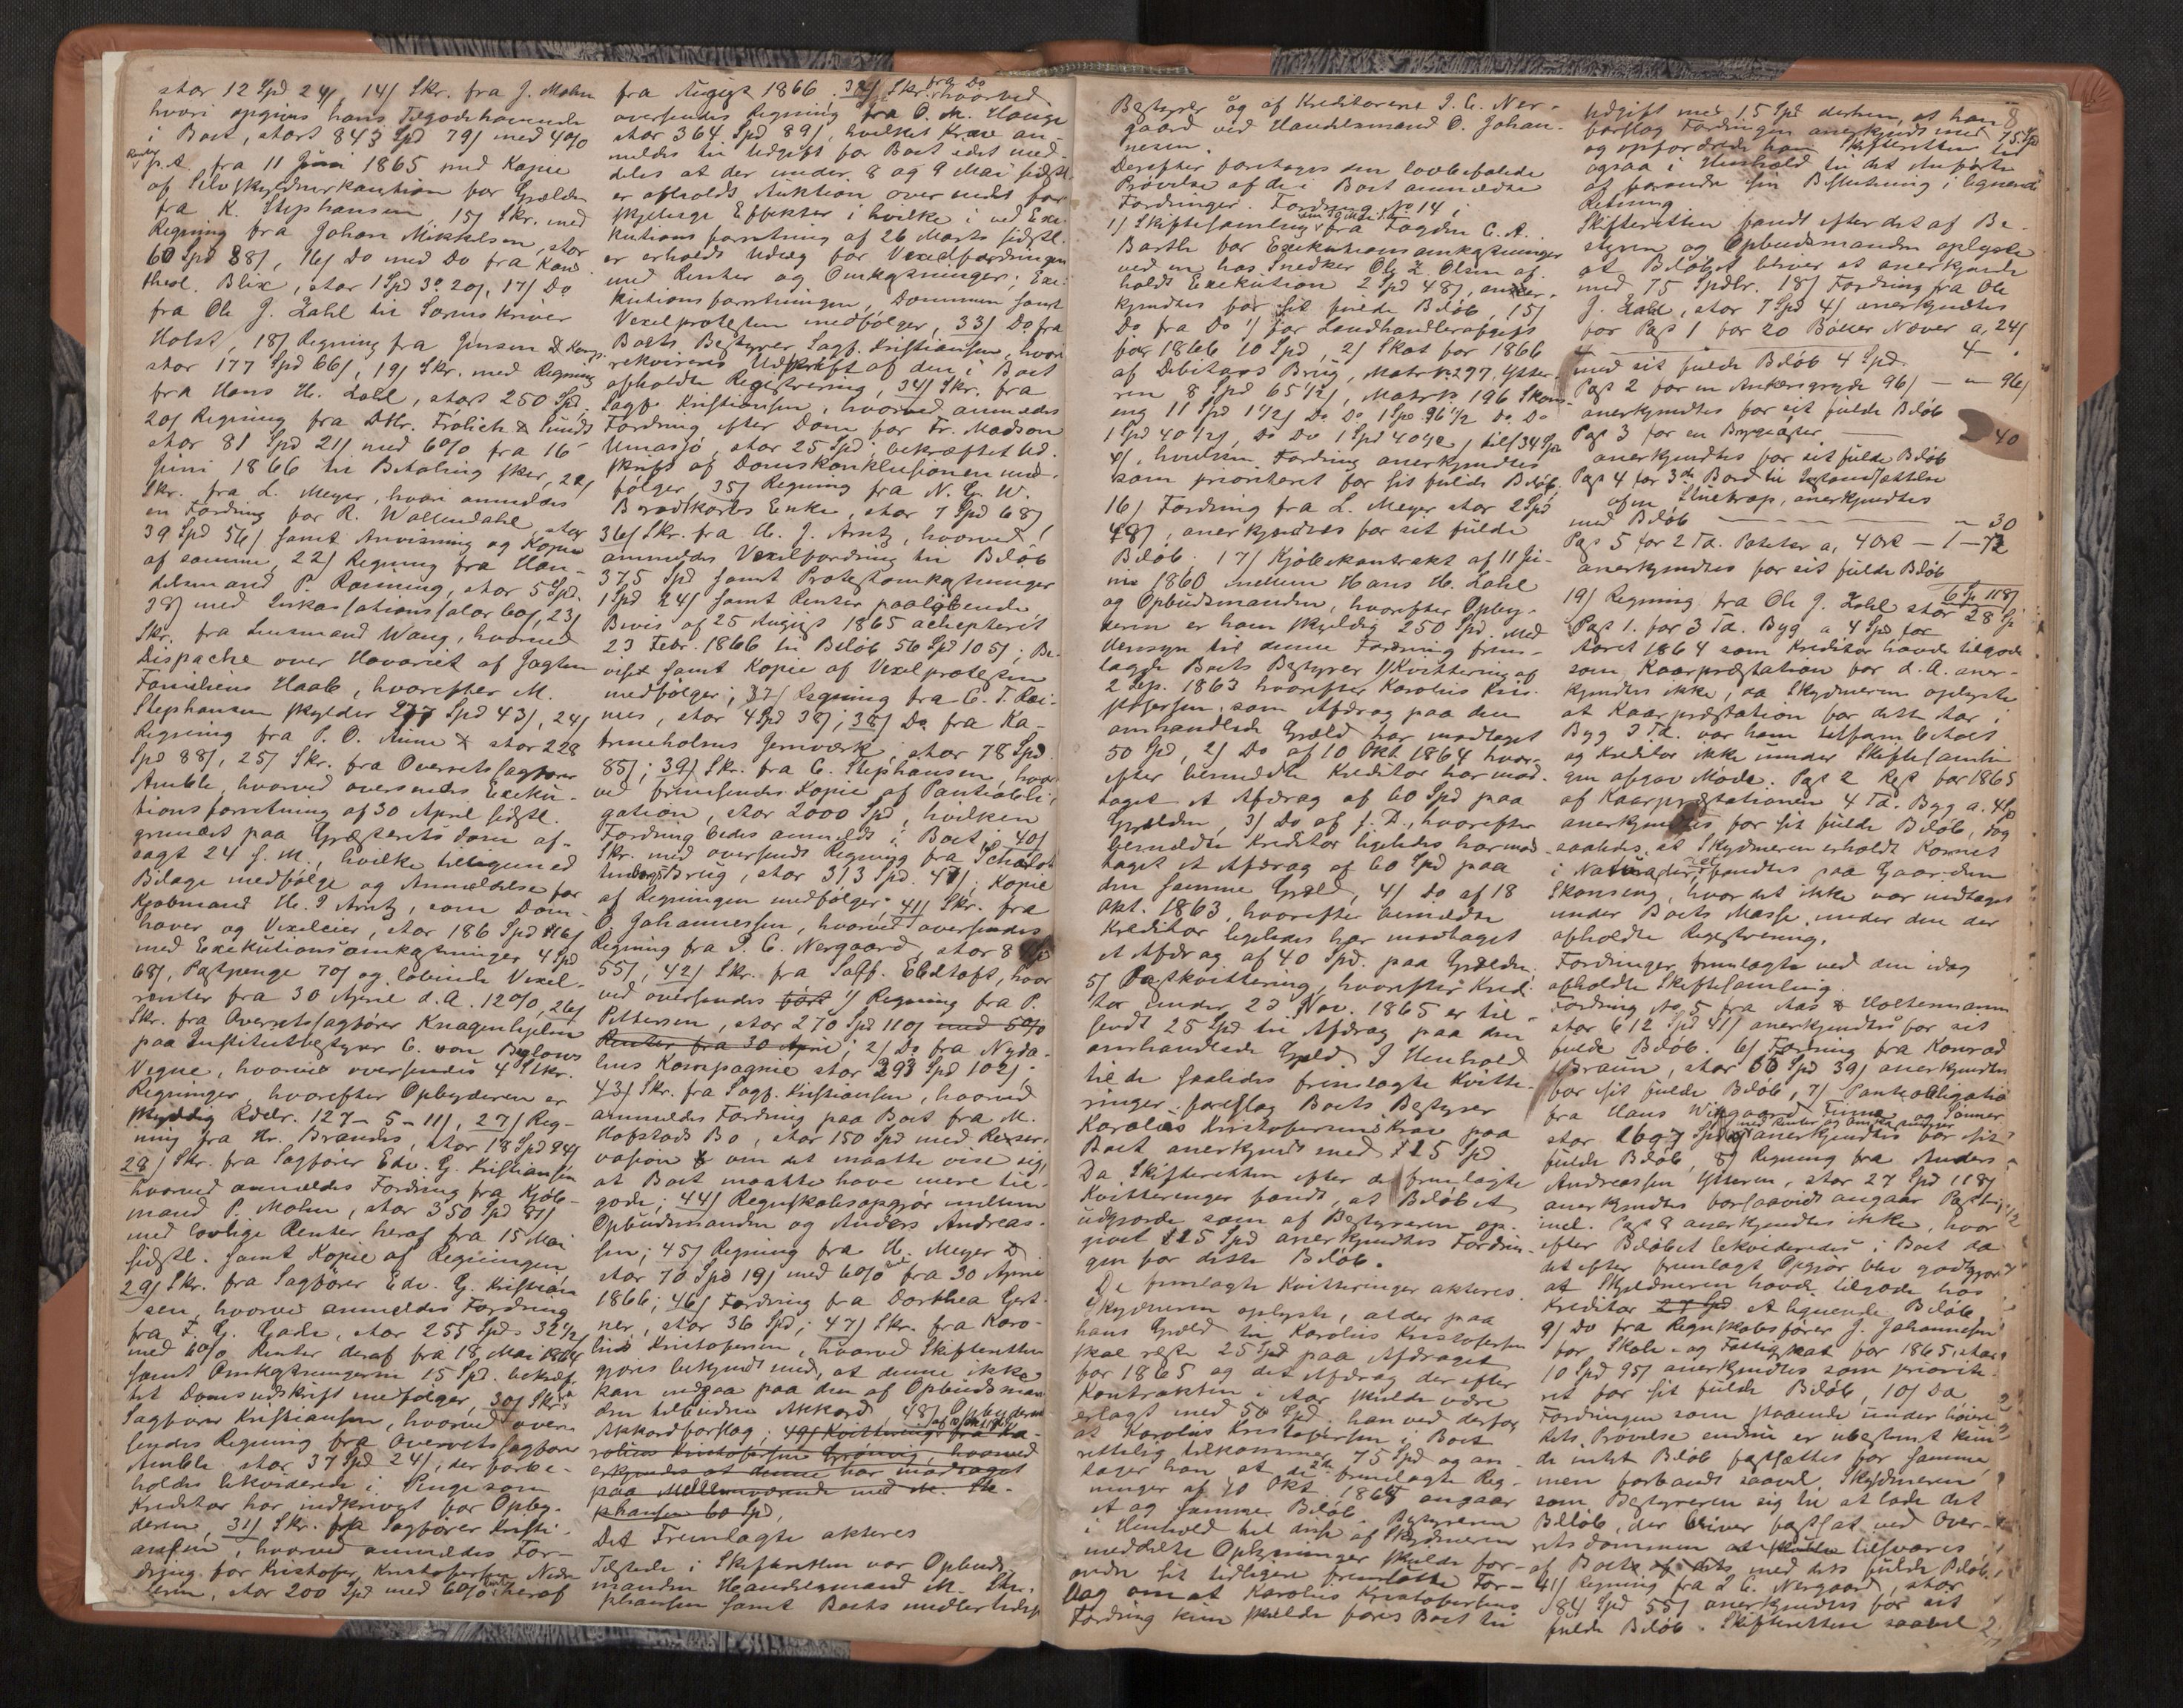 stor 12 Spd 24/, 14/ Skr. fra J. Mohn
hvori opgives hans Tilgodehavende
i Boet, stort 843 Spd 79/ med 4%
Renter
p.A. fra 11 Juni 1865 med Kopie
af Selvskyldnerkaution for Gjælden
fra K. Stephansen, 15/ Skr. med
Regning fra Johan Mikkelsen, stor
60 Spd 88/, 16/ Do med Do fra Kand.
theol. Blix, stor 1 Spd 3o 20/, 17/ Do
fra Ole J. Zahl til Sorenskriver
Holst, 18/ Regning fra Jensen & Komp.
stor 177 Spd 66/, 19/ Skr. med Regning
fra Hans H. Zahl, stor 250 Spd,
20/ Regning fra DHr. Frölich &
stor 81 Spd 21/ med 6% fra 16
Juni 1866 til Betaling sker, 21/
Skr. fra L. Meyer, hvori anmeldes
en Fordring for R. Wallendahl, stor
39 Spd 56/ samt Anvisning og Kopie
af samme, 22/ Regning fra Han-
delsmand P. Rønning, stor 5 Spd.
38/ med Inkassationssalær 60/, 23/
Skr. fra Lensmand Wang, hvorved
Dispache over Havariet af Jagten
Familiens Haab, hvorefter M.
Stephansen skylder 277 Spd 43/, 24/
Regning fra P. O. Aune stor 228
Spd 88/, 25/ Skr. fra Overretssagfører
Amble, hvorved oversendes Exeku-
tionsforretning af 30 April sidstl.
grundet paa Gjæsterets dom af-
sagt 24 s. M., hvilke tilligemed
Bilage medfølge og Anmeldelse for
Kjøbmand H. J. Arntz, som Dom-
haver og Vexeleier, stor 186 Spd 116/
med Exekutionsomkostninger 4 Spd
68/, Postpenge 70/ og løbende Vexel-
renter fra 30 April d.A. 12%, 26/
Skr. fra Overretssagfører Knagenhjelm
paa Institutbestyrer C. von Bülows
Vegne, hvorved oversendes 4 Stkr.
Regninger, hvorefter Opbyderen er
skyldig Rdlr. 127-5-11/, 27/ Reg-
ning fra Hr. Brandes, stor 18 Spd 94/
28/ Skr. fra Sagfører Edv. G. Kristiansen
hvorved anmeldes Fordring fra Kjøb-
mand P. Mohn, stor 350 Spd 87/
med lovlige Renter heraf fra 15 Mai
sidstl. samt Kopie af Regningen
29/ Skr. fra Sagfører Edv. G. Kristian
sen, hvorved anmeldes Fordring
fra F. G. Gade, stor 255 Spd 32½
med 6% Renter deraf fra 18 Mai 1864
samt Omkostningerne 15 Spd. bekræf-
tet Domsudskrift medfølger, 30/ Skr.
Sagfører Kristiansen, hvorved over-
sendes Regning fra Overretssagfører
Amble stor 37 Spd 24/, der forbe-
holdes likviderede i Penge som
Kreditor har indkrævet for Opby-
deren, 31/ Skr. fra Sagfører Kristi-
ansen, hvorved anmeldes For-
dring for Kristofer Kristofersen
stor 200 Spd med 6% Renter heraf
fra August 1866, 32/ Skr. fra Do hvorved
oversendes Regning fra O. M. Hauge
stor 364 Spd 89/, hvilket Krav an-
meldes til Udgift for Boet idet med-
deles at der under 8 og 9 Mai sidstl.
er afholdt Auktion over endel for-
skjellige Effekter i hvilke i ved Exe-
kutionsforretning af 26 Marts sidstl.
er erholdt Udlæg for Vexelfordringen
med Renter og Omkostninger; Exe-
kutionsforretningen, Dommen samt
Vexelprotesten medfølger, 33/ Do fra
Boets Bestyrer Sagf. Kristiansen, hvori
rekvireres Udskrift af den i Boet
afholdte Registrering, 34/ Skr. fra
Sagf. Kristiansen, hvorved anmeldes
Fordring efter Dom for Fr. Madson
Umasjø, stor 25 Spd; bekræftet Ud-
skrift af Domskonklusionen med-
følger, 35/ Regning fra N. G. W.
Brodtkorbs Enke, stor 7 Spd 68/
36/ Skr. fra H. J. Arntz, hvorved
anmeldes Vexelfordring til Beløb
375 Spd samt Protestomkostninger
1 Spd 24/ samt Renter paaløbende
Bevis af 25 August 1865 accepteret
23 Febr. 1866 til Beløb 56 Spd 105/; Be-
viset samt Kopie af Vexelprotesten
medfølger; 37/ Regning fra C. T. Rei-
nes, stor 4 Spd 38/; 38/ Do fra Ka-
trineholms Jernværk, stor 78 Spd
85/; 39/ Skr. fra C. Stephansen, hvor-
ved fremsendes Kopie af Pantobli-
gation, stor 2000 Spd, hvilken
Fordring bedes anmeldt i Boet; 40/
Skr. med oversendt Regning fra
Brug, stor 313 Spd. 47/; Kopie
af Regningen medfølger; 41/ Skr. fra
O Johannessen, hvorved oversendes
Regning fra I. C. Nergaard, stor 8
55/, 42/ Skr. fra Sagf. Ebeltoft, hvor
ved oversendes 1/ Regning fra P.
Pettersen, stor 270 Spd 110/ med 6%
Renter fra 30 April; 2/ Do fra Nyda-
lens Kompagnie stor 293 Spd 102/;
43/ Skr. fra Sagf. Kristiansen, hvorved
anmeldes Fordring paa Boet fra M.
Hofstads Bo, stor 150 Spd med Reser-
vasion om det maatte vise sig,
at Boet maatte have mere til-
gode; 44/ Regnskabsopgjør mellem
Opbudsmanden og Anders Andreas-
sen; 45/ Regning fra H. Meyer
stor 70 Spd 19/ med 6% fra 30 April
1866; 46/ Fordring fra Dorthea Gert-
ner, stor 36 Spd; 47/ Skr. fra Karo-
lius Kristofersen, hvorved Skifteretten
gjøres bekjendt med, at denne ikke
kan indgaa paa den af Opbudsman-
den tilbudne Akkord, 48/ Opbyderens
Akkordforslag; 49/ Kvittering fra Ka-
rolius Kristofersen Grønvig, hvorved
erkjendes at denne har modtaget
paa Mellemværende med M. Ste-
phansen 60 Spd,
Det Fremlagte akteres
Tilstede i Skifteretten var Opbuds-
manden Handelsmand M. Ste-
phansen samt Boets midlertidige
Bestyrer og af Kreditorene I. C. Ner-
gaard ved Handelsmand O. Johan-
nesen.
Derefter foretages den lovbefalede
Prøvelse af de i Boet anmeldte
Fordringer. Fordring No 14 i
1/ Skiftesamling fra Fogden C. A.
Barth for Exekutionsomkostninger
ved en hos Snedker Ole Z. Olsen af-
holdt Exekution 2 Spd 48/, aner-
kjendtes for sit fulde Beløb, 15/
Do fra Do 1/ for Landhandlerafgift
for 1866 10 Spd, 2/ Skat for 1866
af Debitors Brug, Matr. No 297, Ytter-
en 8 Spd 65½/, Matr. No 196 Skons-
eng 11 Spd 1½/ Do Do 1 Spd 96½ Do Do
1 Spd 40½/, Do Do 1 Spd 40½/ 34 Spd
4/, hvilken Fordring anerkjendtes
som prioriteret for sit fulde Beløb.
16/ Fordring fra L. Meyer stor 2 Spd
48/, anerkjendtes for sit fulde
Beløb. 17/ Kjøbekontrakt af 11 Ju-
ni 1860 mellem Hans H. Zahl
og Opbudsmanden, hvorefter Opby-
deren er ham skyldig 250 Spd. Med
Hensyn til denne Fordring frem-
lagde Boets Bestyrer 1/ Kvittering af
2 Sep. 1863 hvorefter Karolius Kri-
stofersen, som Afdrag paa den
omhandlede Gjæld har modtaget
50 Spd, 2/ Do af 10 Okt 1864 hvor-
efter bemeldte Kreditor har mod-
taget et Afdrag af 60 Spd paa
Gjælden, 3/ Do af s. D., hvorefter
bemeldte Kreditor ligeledes har mod-
taget et Afdrag af 60 Spd paa
den samme Gjæld, 4/ Do af 18
Okt. 1863, hvorefter bemeldte
Kreditor ligeledes har modtaget
et Afdrag af 40 Spd. paa Gjælden.
5/ Postkvittering, hvorefter Kredi-
tor under 23 Nov. 1865 er til-
sendt 25 Spd til Afdrag paa den
omhandlede Gjæld. I Henhold
til de saaledes fremlagte Kvitte-
ringer foreslog Boets Bestyrer
Karolius Kristofersens Krav paa
Boet anerkjendt med 125 Spd
Da Skifteretten efter de fremlagte
Kvitteringer fandt, at Beløbet
udgjorde som af Bestyreren op-
givet 125 Spd anerkjendtes Fordrin-
gen for dette Beløb.
De fremlagte Kvitteringer akteres.
Skyldneren oplyste, at der paa
hans Gjæld til Karolius Kristofersen
skal reste 25 Spd paa Afdraget
for 1865 og det Afdrag der efter
Kontrakten i Aar skulde være
erlagt med 50 Spd. han ved derfor
at Karolius Kristofersen i Boet
rettelig tilkommer 75 Spd og an-
tager han at de 2de fremlagte Reg-
ninger af 10 Okt. 1864 angaar
et og samme Beløb. Bestyreren
i Henhold til disse af Skyldneren
meddelte Oplysninger skulde for-
andre sit tidligere fremsatte For-
slag om at Karolius Kristofersens
Fordring kun skulde føres Boet til
Udgift med 15 Spd derhen, at han
forslog Fordringen anerkjendt med 75 Spd
og opfordrede han Skifteretten til
ogsaa i Henhold til det Anførte
at forandre sin Beslutning i lignende
Retning
Skifteretten fandt efter det af Be-
styreren og Opbudsmanden oplyste
at Beløbet bliver at anerkjende
med 75 Spdlr. 18/ Fordring fra Ole
J. Zahl, stor 7 Spd 4/ anerkjendtes
for Post 1 for 20 Bøtter Næver a, 24/
med sit fulde Beløb 4 Spd. 4 - .
Post 2 for en Ankersgryde 96/ — " 96/
anerkjendtes for sit fulde Beløb
Post 3 for en — 40
anerkjendtes for sit fulde Beløb
Post 4 for 3de Bord til
af en, anerkjendtes
med Beløb — " 30
Post 5 for 2 Td. Poteter a, — 1 — 72
anerkjendtes for sit fulde Beløb
6 Sp 118/
19/ Regning fra Ole J. Zahl stor 28 Sp
Post 1. for 3 Td. Byg a 4 Spd for
Aaret 1864 som Kreditor havde tilgode
som Kaarprestation for d. A. aner-
kjendtes ikke, da Skyldneren oplyste
at Kaarprestation for dette Aar i
Byg 3 Td. var ham tilfulde betalt
og Kreditor ikke under Skiftesamlin-
gen afgav Møde. Post 2 Rest for 1865
af Kaarprestationen 4 Td. Byg a. 4 Sp
anerkjendtes for sit fulde Beløb, dog
saaledes, at Skyldneren erholdt Kornet
i Natura der fandtes paa Gaarden
Skonseng, hvor det ikke var indtaget
under Boets Masse under den der
afholdte Registrering.
Fordringer fremlagte ved den idag
afholdte Skiftesamling.
Fordring No 5 fra Aas & Holtermann
stor 612 Spd 41/ anerkjendtes for sit
fulde Beløb. 6/ Fordring fra Konrad
Braun, stor 66 Spd 39/ anerkjendtes
for sit fulde Beløb, 7/ Pantobligation
fra Hans Finne og Sønner
med Renter og Omkostninger
stor 1697 Spd anerkjendtes for sit
fulde Beløb, 8/ Regning fra Anders
Andreassen Ytteren, stor 27 Spd 118/
anerkjendtes forsaavidt angaar Post 1,
incl. Post 8 anerkjendtes ikke, hvor
efter Beløbet likvideredes i Boet da
det efter fremlagt Opgjør blev godtgjort
at Skyldneren havde tilgode hos
Kreditor 27 Spd et lignende Beløb
9/ Do fra Regnskabsfører J. Johannesen
for Skole- og Fattigskat for 1865, stor
10 Spd 95/ anerkjendtes som priorite-
ret for sit fulde Beløb, 10/ Da
Fordringen som staaende under høiere
Rets Prøvelse endnu er ubestemt kun-
de intet Beløb fastsættes for samme,
men forbandt saavel Skyldneren
som Bestyreren sig til at lade det
Beløb, der bliver fastsat ved Over-
retsdommen at skulde tilsvares
af Boet med dets fulde Beløb.
41/ Regning fra I. C. Nergaard, stor
84 Spd 55/ anerkjendtes for sit
fulde Beløb. Skifteretten saavel